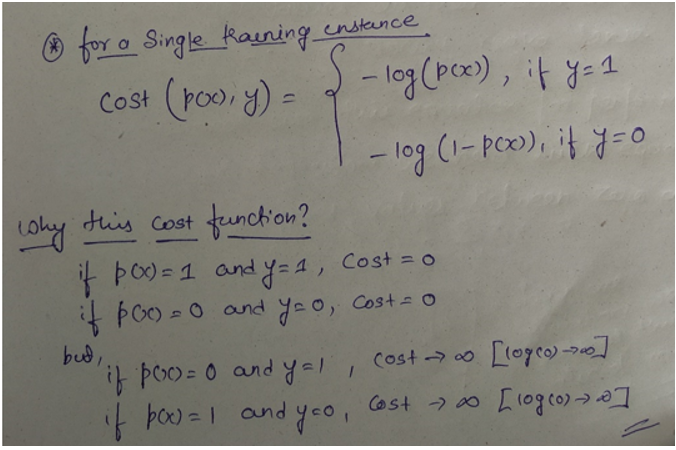 ⊛ for a Single training instance
cost (p(x), y) = { - log(p(x)), if y=1
- log (1-p(x)), if y=0
Why this cost function?
if p(x) = 1 and y=1, Cost = 0
if p(x) = 0 and y=0, Cost = 0
but,
if p(x) = 0 and y=1, Cost → ∞ [log(0) → ∞]
if p(x) = 1 and y=0, Cost → ∞ [log(0) → ∞]